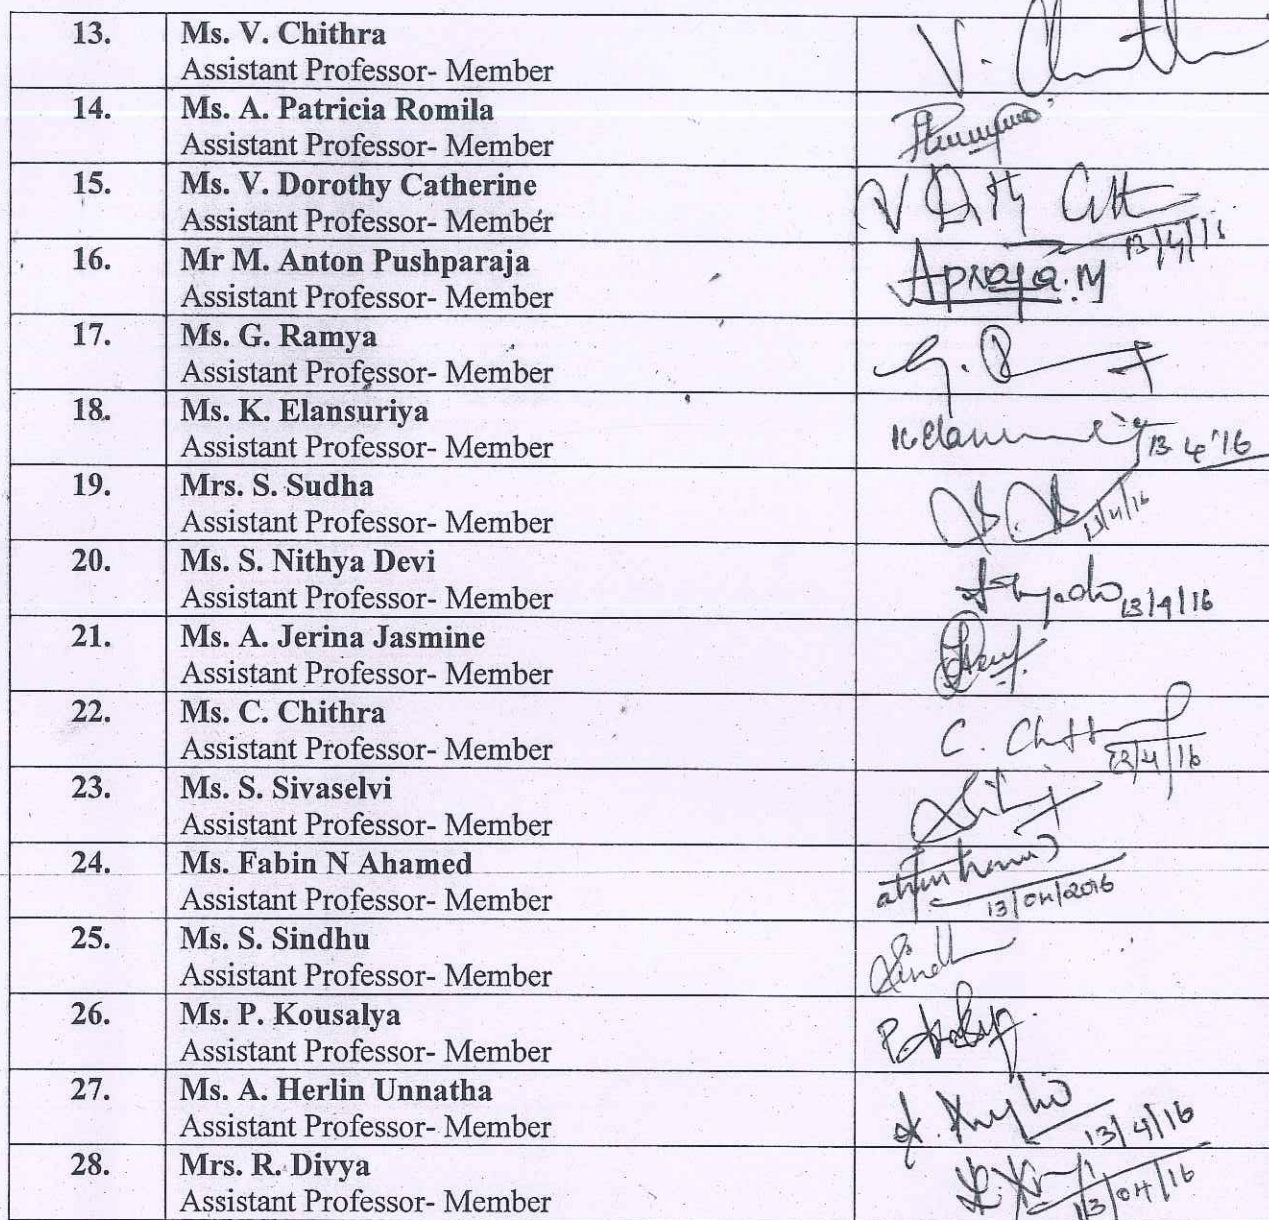 13. Ms. V. Chithra V. Chith
Assistant Professor- Member
14. Ms. A. Patricia Romila
Assistant Professor- Member
15. Ms. V. Dorothy Catherine
Assistant Professor- Member 13/4/16
16. Mr M. Anton Pushparaja
Assistant Professor- Member
17. Ms. G. Ramya G.
Assistant Professor- Member
18. Ms. K. Elansuriya
Assistant Professor- Member 13 4'16
19. Mrs. S. Sudha
Assistant Professor- Member 13/4/16
20. Ms. S. Nithya Devi
Assistant Professor- Member 13/4/16
21. Ms. A. Jerina Jasmine
Assistant Professor- Member
22. Ms. C. Chithra C.
Assistant Professor- Member 13/4/16
23. Ms. S. Sivaselvi
Assistant Professor- Member
24. Ms. Fabin N Ahamed
Assistant Professor- Member 13/04/2016
25. Ms. S. Sindhu Sindh
Assistant Professor- Member
26. Ms. P. Kousalya P.
Assistant Professor- Member
27. Ms. A. Herlin Unnatha
Assistant Professor- Member 13/4/16
28. Mrs. R. Divya
Assistant Professor- Member 13/04/16